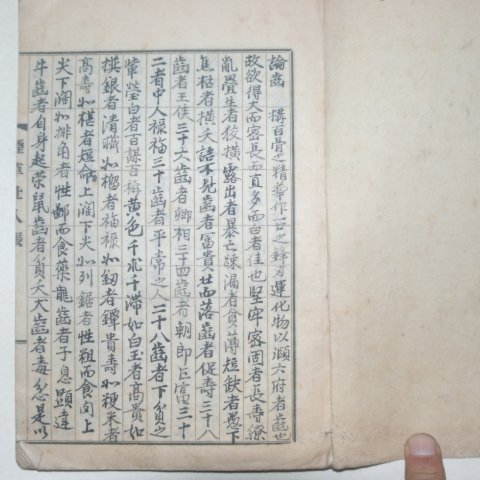 論齒 搆百骨之精華作一口之鋒刃運化物以頤六府者齒也
故欲得大而密長而直多而白者佳也堅牢密固者長壽繚
亂疊生者狡橫露出者暴亡疎漏者貧薄短缺者愚下
焦枯者橫夭語不見齒者富貴壯而落齒者促壽三十八
齒者王侯三十六齒者卿相三十四齒者朝郎巨富三十
二者中人祿福三十齒者平常之人二十八齒者下貧之
輩瑩白者百謀百稱黃色千求千滯如白玉者高貴如
爛銀者清職如榴者福祿如劒者鐔貴壽如粳米者
高壽如椹者短命上闊下尖如列鋸者性粗而食肉上
尖下闊如排角者性鄙而食藥龍齒者子息顯達
牛齒者自身起荣鼠齒者貧夭犬齒者毒忿是以